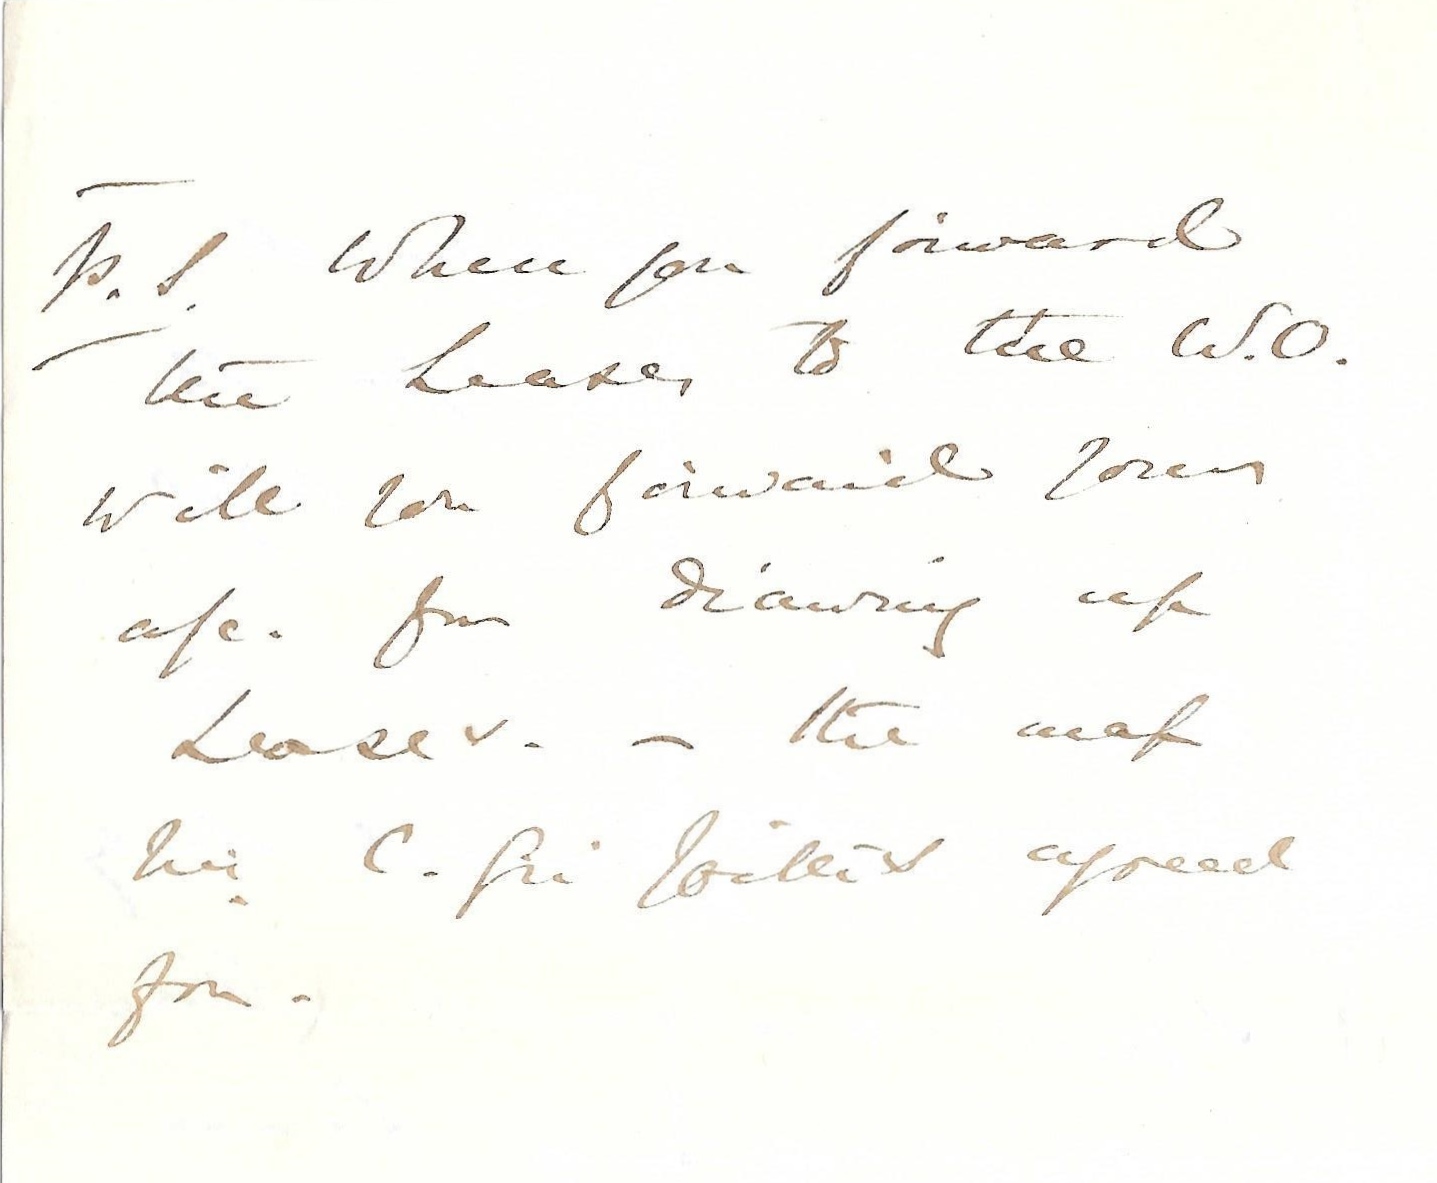 P.S. When you forward
the Leases to the W.O.
will you forward your
a/c. for drawing up
Leases. - the map
agreed
for.